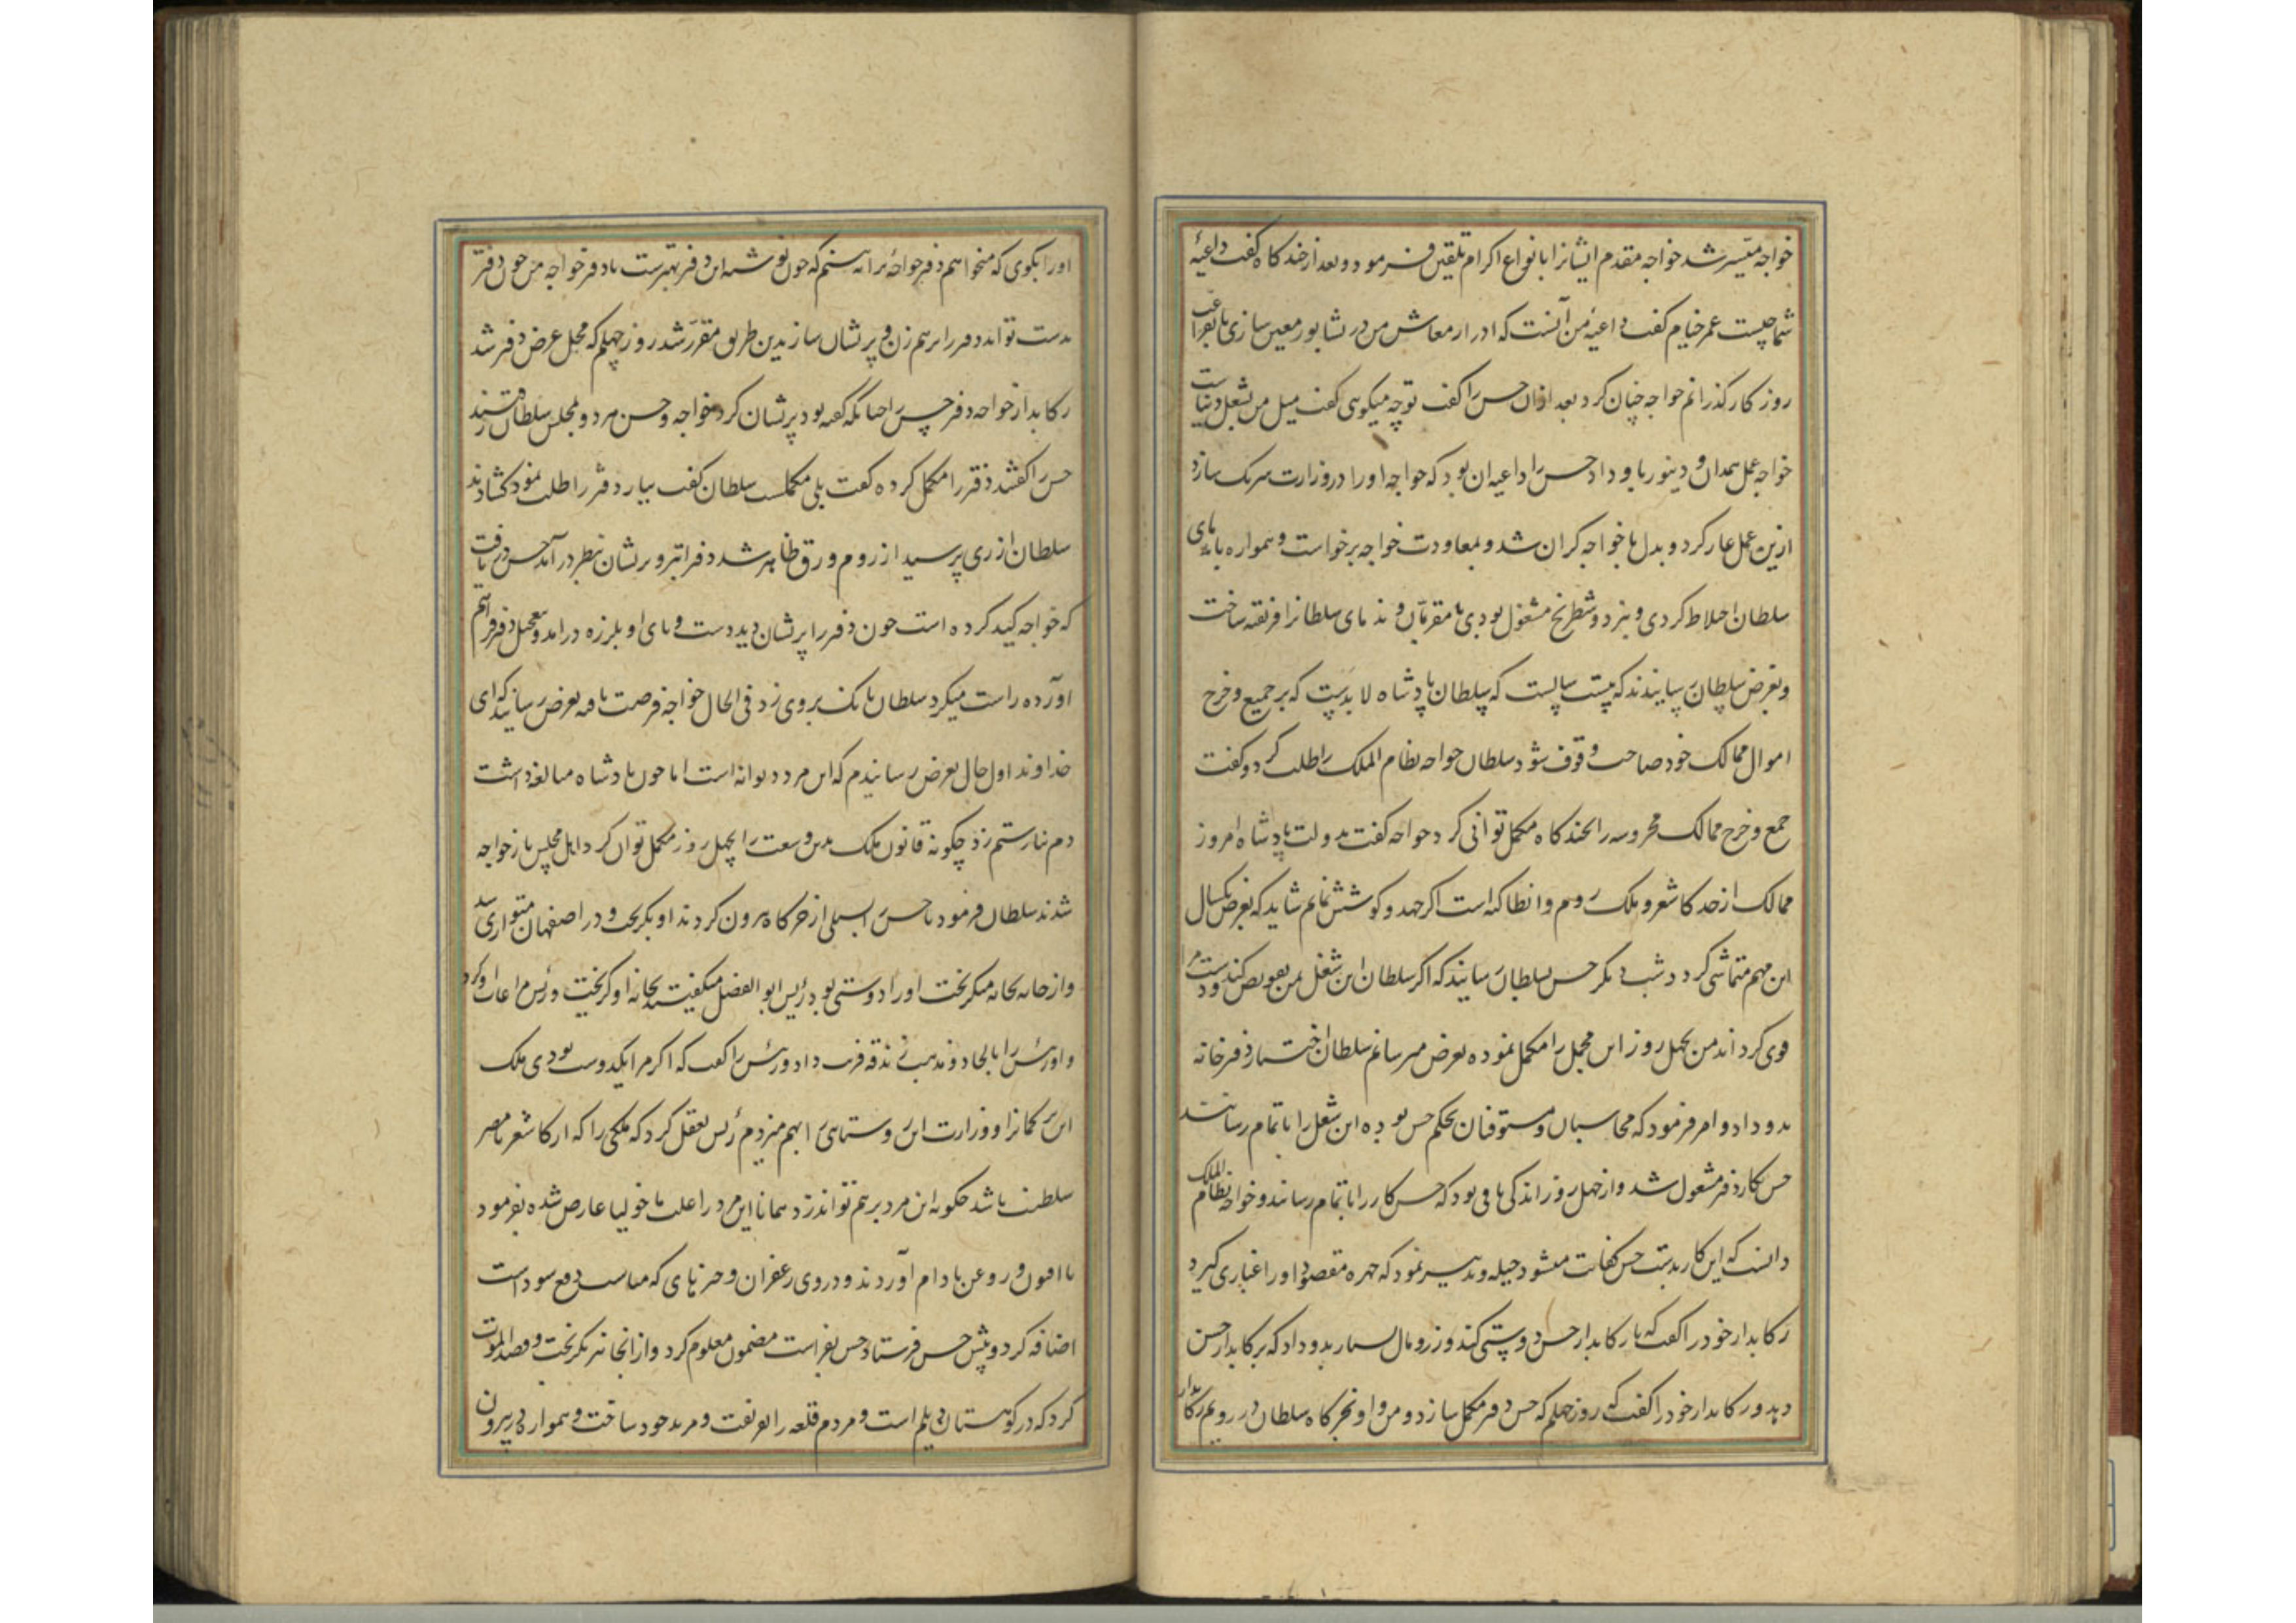 خواجه میسر شد خواجه مقدم ایشانرا بانواع اکرام تلقین فرمود و بعد از چندکاه کفت داعیهٔ
شما چیست عمر خیام کفت داعیهٔ من آنست که ادرار معاش من در نشابور معین سازی تا بفراغت
روزکار کذرانم خواجه چنان کرد بعد ازان حسن را کفت تو چه میکویی کفت میل من بشغل دنیاست
خواجه عمل همدان و دینور باو داد حسن را داعیه ان بود که خواجه اورا در وزارت شریک سازد
ازین عمل عار کرد و بدل با خواجه کران شد و بمعاودت خواجه برخواست و همواره با ندمای
سلطان اختلاط کردی و بنرد و شطرنج مشغول بودی تا مقربان و ندمای سلطانرا فریفته ساخت
و بعرض سلطان رسانیدند که بیست سالست که سلطان پادشاه لابدست که بر جمیع و خرج
اموال ممالک خود صاحب وقوف شود سلطان خواجه نظام الملک را طلب کرد و کفت
جمع و خرج ممالک محروسه را بچندکاه مکمل توانی کرد خواجه کفت بدولت پادشاه امروز
ممالک از حد کاشغر و ملک روم و انطاکیه است اکر جهد و کوشش نمایم شاید که بعرض یکسال
این مهم متماشی کردد شب دیکر حسن بسلطان رسانید که اکر سلطان این شغل بمن تفویض کند و دست مرا
قوی کرداند من بچهل روز این مجمل را مکمل نموده بعرض میرسانم سلطان اختیار دفترخانه
بدو داد و امر فرمود که محاسبان و مستوفیان بحکم حسن بوده این شغل را باتمام رسانند
حسن بکار دفتر مشغول شد و از چهل روز اندکی باقی بود که حسن کار را باتمام رساند و خواجه نظام الملک
دانست که این کار بدست حسن کفایت میشود حیله و تدبیر نمود که چهره مقصود اورا غباری کیرد
رکابدار خود را کفت که با رکابدار حسن دوستی کند و زر و مال بسیار بدو داد که برکابدار حسن
دهد و رکابدار خود را کفت که روز چهلم که حسن دفتر مکمل سازد و من و او بخرکاه سلطان در رویم رکابدار
اورا بکوی که میخواهم دفتر خواجهٔ ترا به بینم که چون نوشته این دفتر بهترست یا دفتر خواجه من چون دفتر
بدست تو اید دفتر را برهم زن و پریشان ساز بدین طریق مقرر شد روز چهلم که محل عرض دفتر شد
رکابدار خواجه دفتر حسن را چنانکه کفته بود پریشان کرد خواجه و حسن هر دو بمجلس سلطان رفتند
حسن را کفتند دفتر را مکمل کرده کفت بلی مکملست سلطان کفت بیار دفتر را طلب نمود کشادند
سلطان از ری پرسید از روم ورق ظاهر شد دفتر ابتر و پریشان بنظر در آمد حسن دریافت
که خواجه کید کرده است چون دفتر را پریشان دید دست و پای او بلرزه درامد و بتعجیل دفتر فراهم
اورده راست میکرد سلطان بانک بر وی زد فی الحال خواجه فرصت یافته بعرض رسانید که ای
خداوند اول حال بعرض رسانیدم که این مرد دیوانه است اما چون پادشاه مبالغه داشت
دم نیارستم زد چکونه قانون ملک بدین وسعت را بچهل روز مکمل توان کرد اهل مجلس یار خواجه
شدند سلطان فرمود تا حسن را بسیلی از خرکاه بیرون کردند او بکریخت و در اصفهان متواری شد
و از خانه بخانه میکریخت اورا دوستی بود رئیس ابو الفضل میکفتند بخانه او کریخت و رئیس مراعات او کرد
و او رئیس را بالحاد و مذهب زندقه فریب داد و رئیس را کفت که اکر مرا یکدوست بودی ملک
این ترکمانرا و وزارت این روستایی را بهم میزدم رئیس تعقل کرد که ملکی را که از کاشغر تا مصر
سلطنت باشد چکونه این مرد برهم تواند زد همانا این مرد را علت ماخولیا عارض شده بفرمود
تا افیون و روغن بادام آوردند و دروی زعفران و چیزهای که مناسب دفع سوداست
اضافه کرد و پیش حسن فرستاد حسن بفراست مضمون معلوم کرد و از انجا نیز بکریخت و قصد الموت
کرد که در کوهستان دیلم است و مردم قلعه را بفریفت و مرید خود ساخت و همواره در بیرون